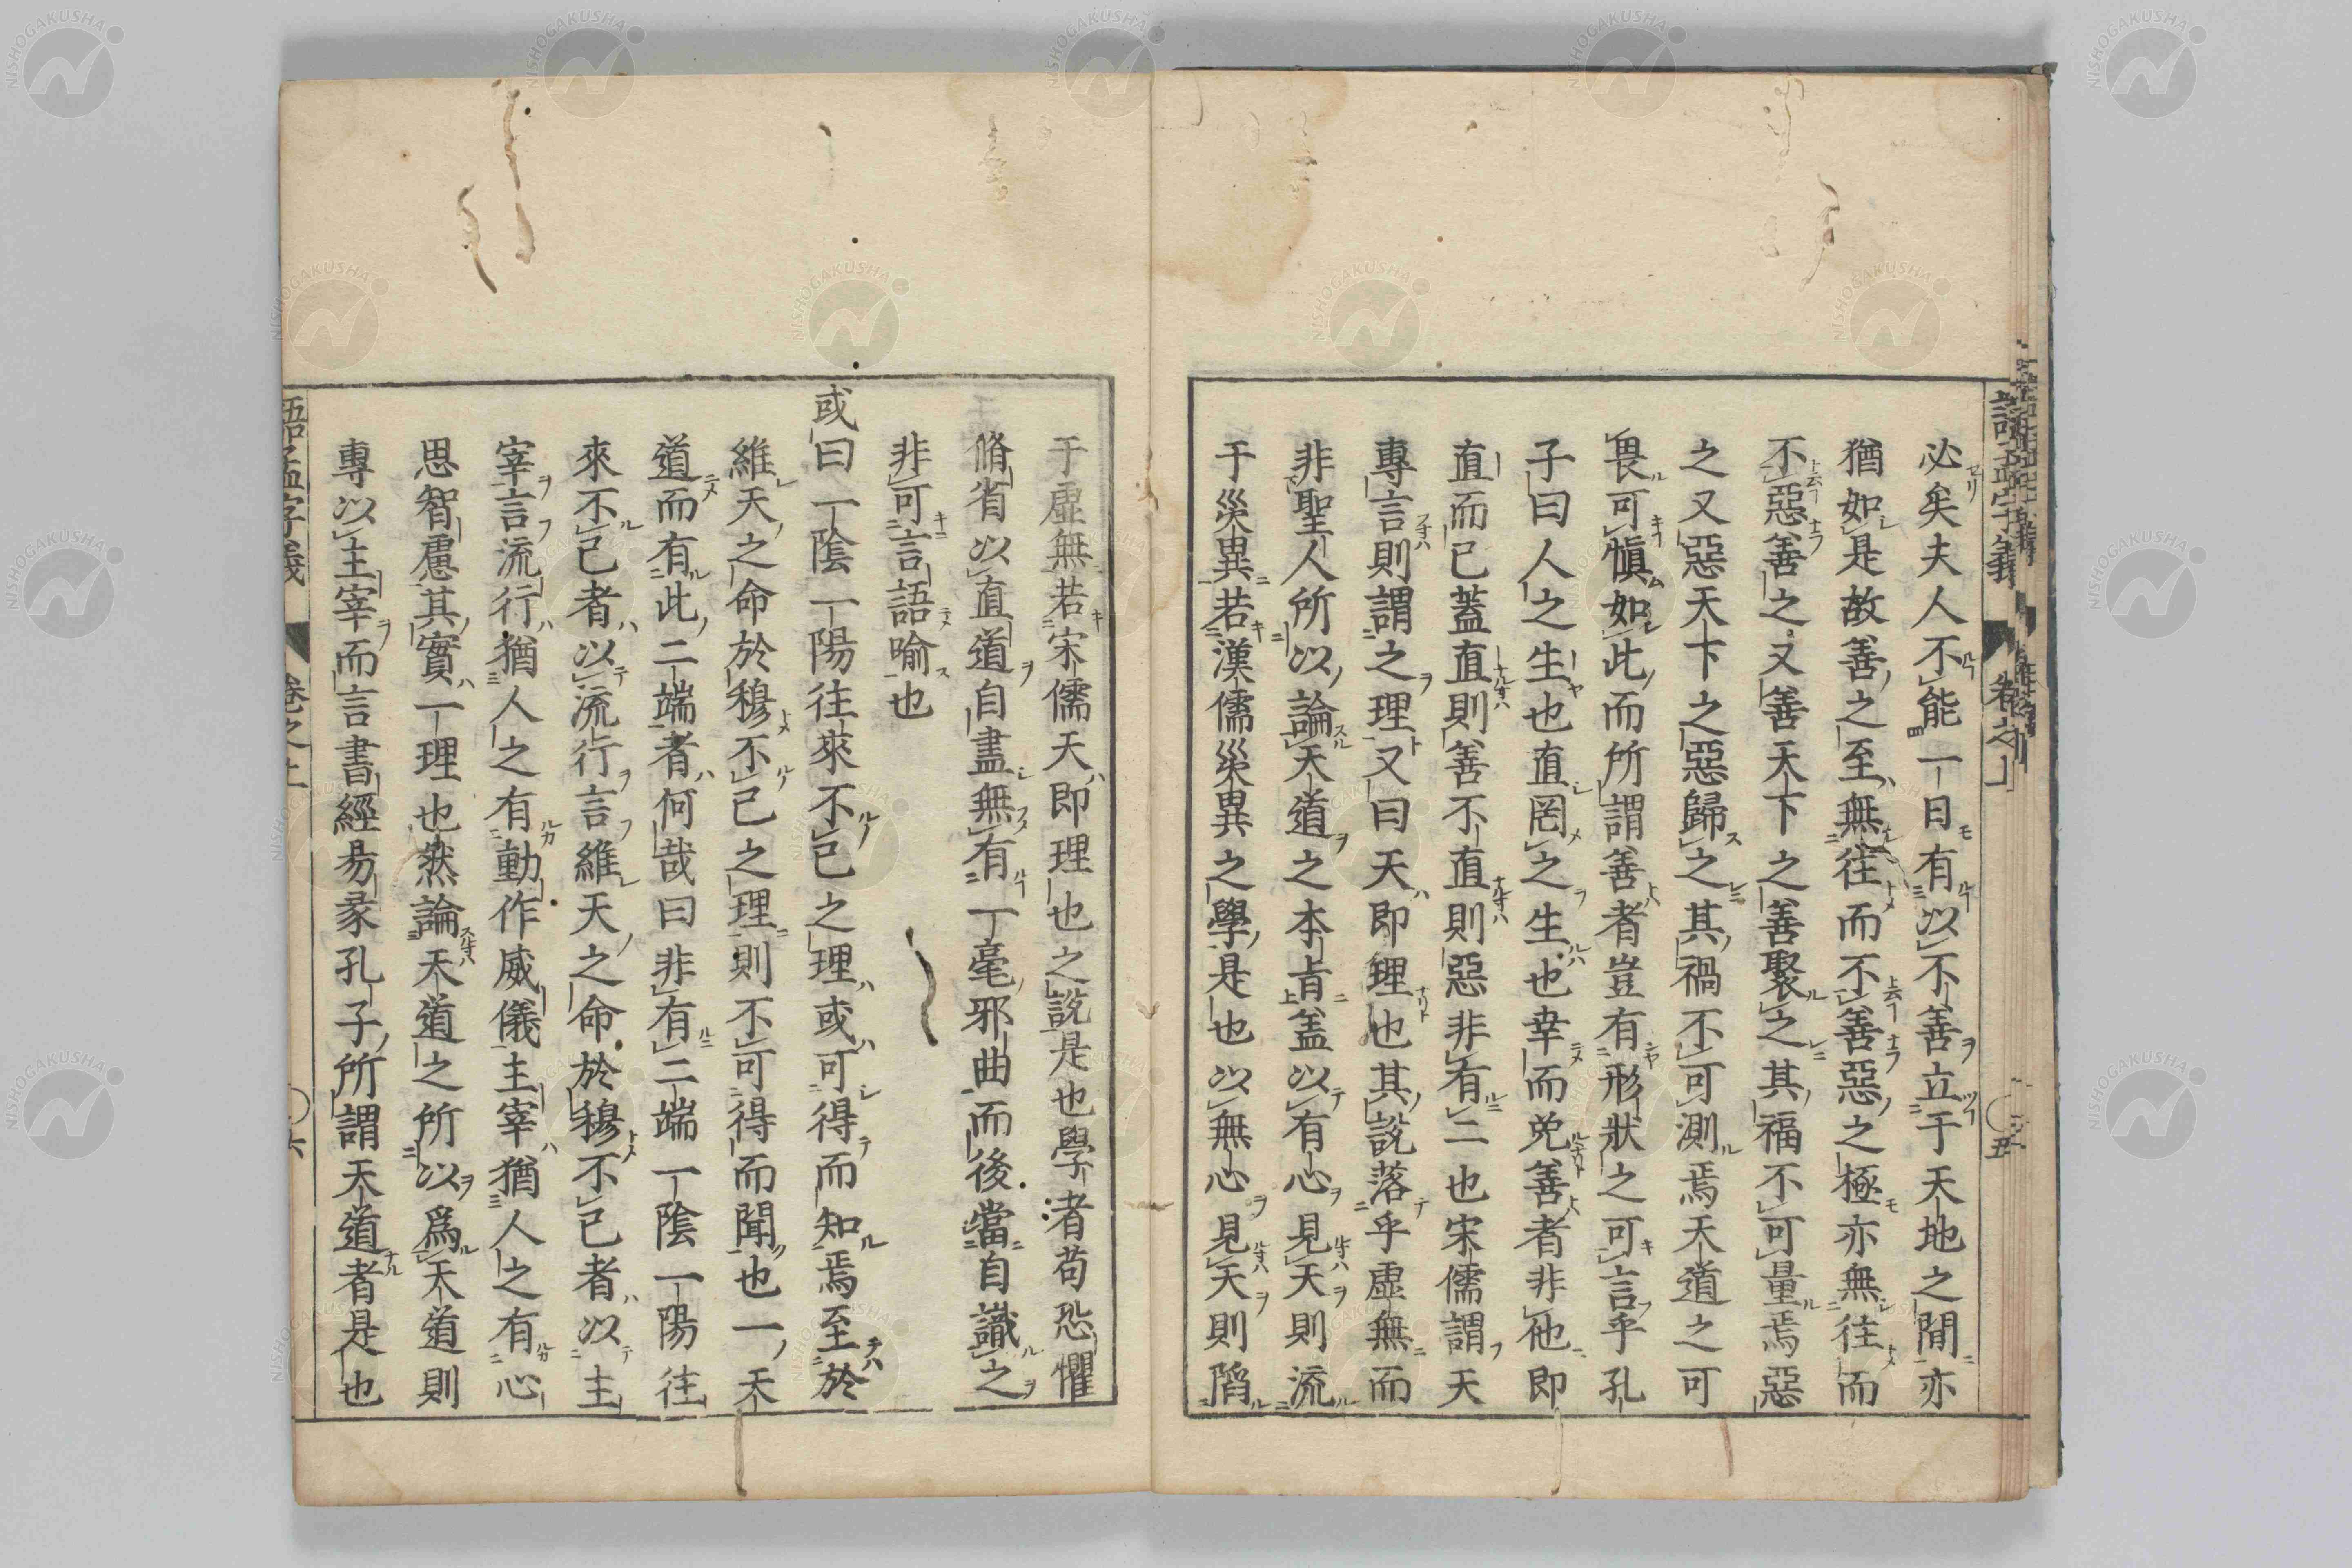 必矣夫人不能一日有以不善立于天地之間亦
猶如是故善之至無往而不善惡之極亦無往而
不惡善之又善天下之善聚之其福不可量焉惡
之又惡天下之惡歸之其禍不可測焉天道之可
畏可愼如此而所謂善者豈有形狀之可言乎孔
子曰人之生也直罔之生也幸而免善者非他即
直而已蓋直則善不直則惡非有二也宋儒謂天
專言則謂之理又曰天即理也其說落乎虛無而
非聖人所以論天道之本旨盖以有心見天則流
于災異若漢儒災異之學是也以無心見天則陷
于虛無若宋儒天即理也之說是也學者苟恐懼
脩省以直道自盡無有一毫邪曲而後當自識之
非可言語喻也
或曰一陰一陽往來不已之理或可得而知焉至於
維天之命於穆不已之理則不可得而聞也一天
道而有此二端者何哉曰非有二端一陰一陽往
來不已者以流行言維天之命於穆不已者以主
宰言流行猶人之有動作威儀主宰猶人之有心
思智慮其實一理也然論天道之所以爲天道則
專以主宰而言書經易彖孔子所謂天道者是也
語孟字義 卷之上 〇六